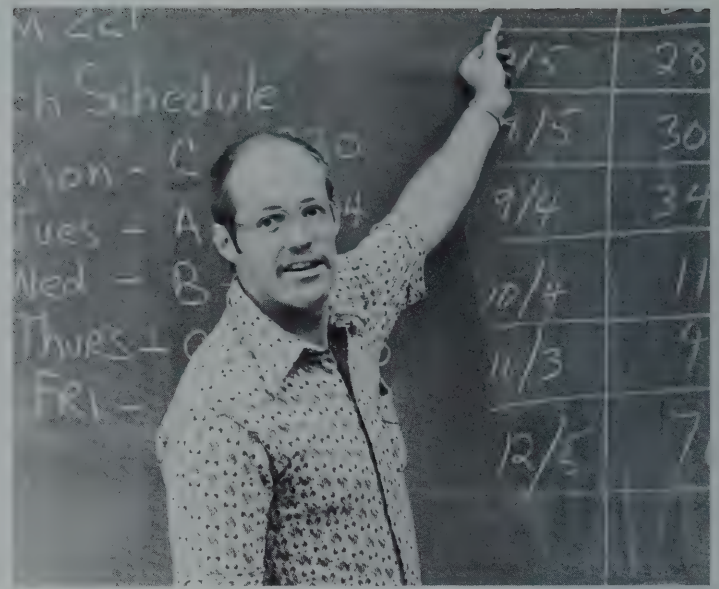 Schedule
Mon - C 30
Tues - A 4
Wed - B
Thurs -
FRI -
/5 28
/5 30
9/4 34
10/4 11
11/3 9
12/5 7